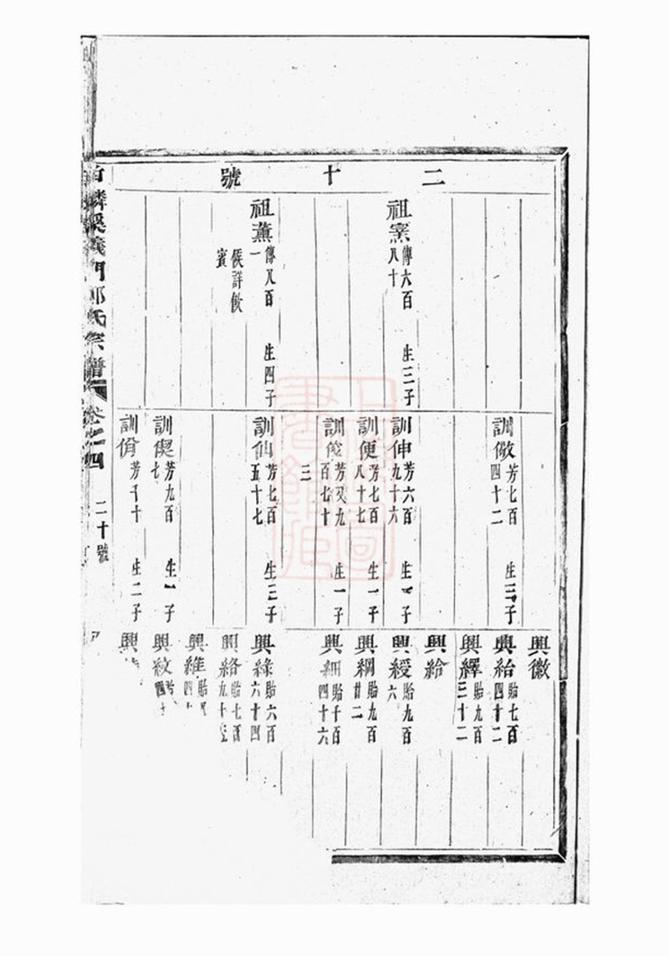 二十號
祖窯 傳六百八十 生三子
祖薰 傳八百一 生四子
侯詳攸賓
訓儆 芳七百四十二 生三子
訓伸 芳六百九十六 生一子
訓便 芳七百八十七 生一子
訓俊 芳又九百七十三 生一子
訓仙 芳七百五十七 生三子
訓偰 芳九百七 生一子
訓脩 芳千十 生二子
興徽
興給 貽七百四十二
興繹 貽九百三十二
興給
興綬 貽九百六
興綱 貽九百廿二
興細 貽千百四十六
興緣 貽六百六十四
興絡 貽七百九十五
興維 貽
興紋 貽
興
麟溪義門鄭氏宗譜 卷之四 二十號